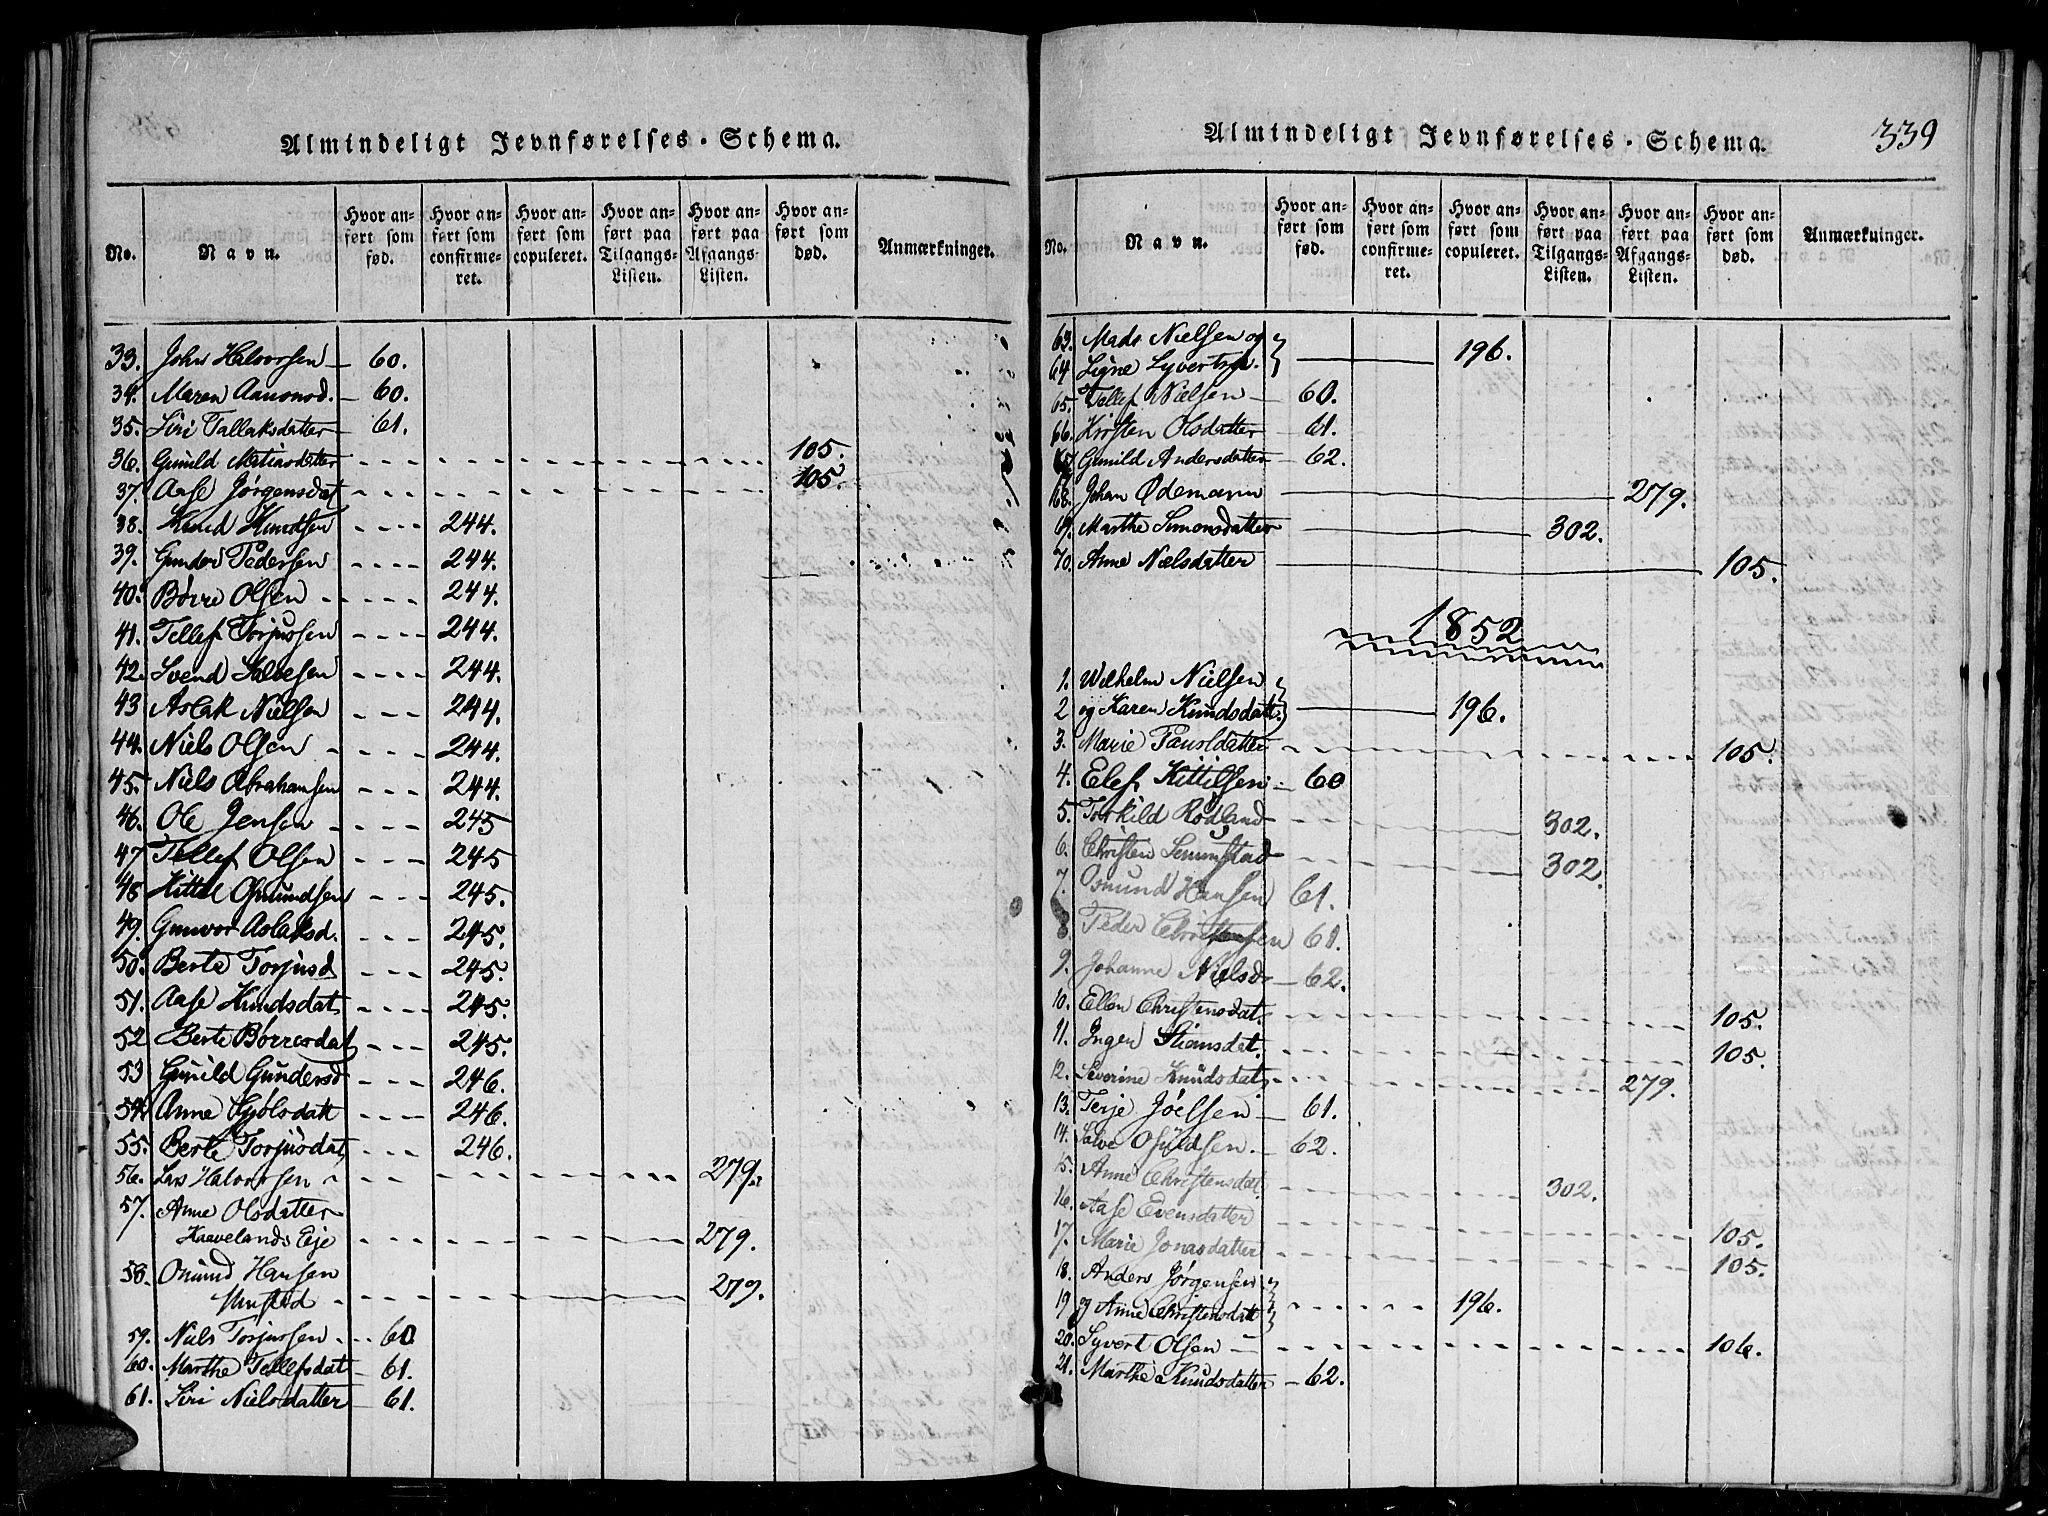 Almindeligt Jevnførelses-Schema.
No.
Navn.
Hvor anført som fød.
Hvor anført som confirmeret.
Hvor anført som copuleret.
Hvor anført paa Tilgangs-Listen.
Hvor anført paa Afgangs-Listen.
Hvor anført som død.
Anmærkninger.
33. John Halvorsen — 60.
34. Maren Aamonsd. — 60.
35. Siri Tallaksdatter — 61.
36. Gunild Matiasdatter 105.
37. Aase Jørgensdat 105.
38. Knud Knudsen 244.
39. Gunder Pedersen 244.
40. Børre Olsen 244.
41. Tellef Torjussen 244.
42. Svend 244.
43 Aslak Nielsen 244.
44. Niels Olsen 244.
45. Niels Abrahamsen 244.
46. Ole Jensen 245
47 Tellef Olsen 245
48 Kittel Osmundsen 245.
49. Gunvor Aslaksd. 245.
50. Berte Torjusd 245.
51. Aase Knudsdat 245.
52 Berte Børresdat 245.
53 Gunild Gundersd 246.
54 Anne 246.
55. Berte Torjusdat 246.
56. Lars Halvorsen 279.
57. Anne Olsdatter
Haavelands Eje 279.
58. Osmund Hansen
279.
59. Niels Torjussen 60
60. Marthe Tellefsdat 61.
61. Siri Nielsdatter — 61.
Almindeligt Jevnførelses-Schema. 339
No.
Navn.
Hvor anført som fød.
Hvor anført som confirmeret.
Hvor anført som copuleret.
Hvor anført paa Tilgangs-Listen.
Hvor anført paa Afgangs-Listen.
Hvor anført som død.
Anmærkninger.
63. Mads Nielsen og
64 Signe 196.
65. Tellef Nielsen — 60.
66. Kirsten Olsdatter — 61.
67 Gunild Andersdatter — 62.
68. Johan Ødemann 279.
69. Marthe Simonsdatter 302.
70. Anne Nielsdatter 105.
1852
1. Wilhelm Nielsen
2 og Karen Knudsdatt. 196.
3. Marie Paulsdatter 105.
4. Elef Kittilsen 60
5. Torkild Rødland 302.
6. Christen 302.
7. Osmund Hansen 61.
8 Peder Christensen 61.
9. Johanne Nielsd — 62.
10. Ellen Christensdat. 105.
11. Inger Stiansdat. 105.
12. Severine Knudsdat 279.
13. Terje Joelsen — 61.
14. Salve Osuldsen. — 62.
15. Anne Christensdat 302.
16. Aase Evensdatter
17. Marie Jonasdatter 105.
18. Anders Jørgensen 105.
19 og Anne Christensdatt 196.
20. Syvert Olsen 106.
21. Marthe Knudsdatter — 62.